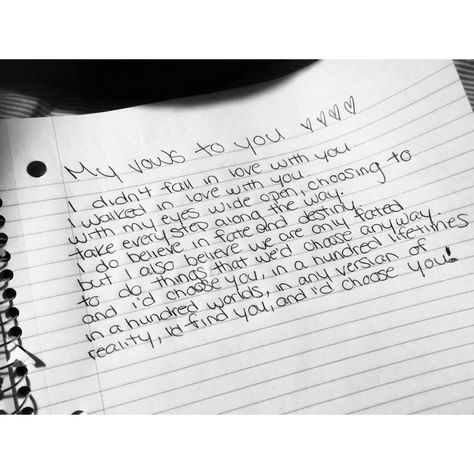 My vows to you ♡♡♡♡
I didn't fall in love with you
I walked in love with you.
with my eyes wide open, choosing to
take every step along the way.
I do believe in fate and destiny.
but I also believe we are only fated
to do things that we'd choose anyway.
and i'd choose you, in a hundred lifetimes
in a hundred worlds, in any version of
reality, i'd find you, and i'd choose you!